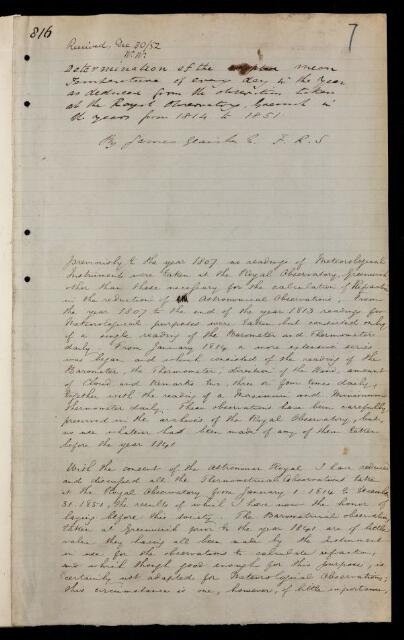 816
7
Received, Dec 30/52
Determination of the mean
Temperature of every day in the Year
as deduced from the observations taken
at the Royal Observatory, Greenwich in
the years from 1814 to 1851
By James Glaisher Esq. F. R. S
Previously to the year 1807 no readings of Meteorological
Instruments were taken at the Royal Observatory, Greenwich
other than those necessary for the calculation of Refraction
in the reduction of Astronomical Observations, From
the year 1807 to the end of the year 1813 readings for
Meteorological purposes were taken but consisted only
of a single reading of the Barometer and Thermometer
daily. From January 1814 a more extensive series
was began and which consisted of the reading of the
Barometer, the Thermometer; direction of the Wind, amount
of Cloud and Remarks two, three or four times daily,
together with the reading of a Maximum and Minimum
Thermometer daily. These observations have been carefully
preserved in the archives of the Royal Observatory, but,
no use whatever had been made of any of them taken
before the year 1841
With the consent of the Astronomer Royal I have reduced
and discussed all the Thermometrical observations taken
at the Royal Observatory from January 1. 1814 to December
31. 1851, the results of which I have now the honor of
laying before this Society. The Barometrical observations
taken at Greenwich prior to the year 1841 are of little
value they having all been made by the instrument
in use for the observations to calculate refraction,
and which though good enough for this purpose, is
certainly not adapted for Meteorological Observations;
this circumstance is one, however, of little importance,